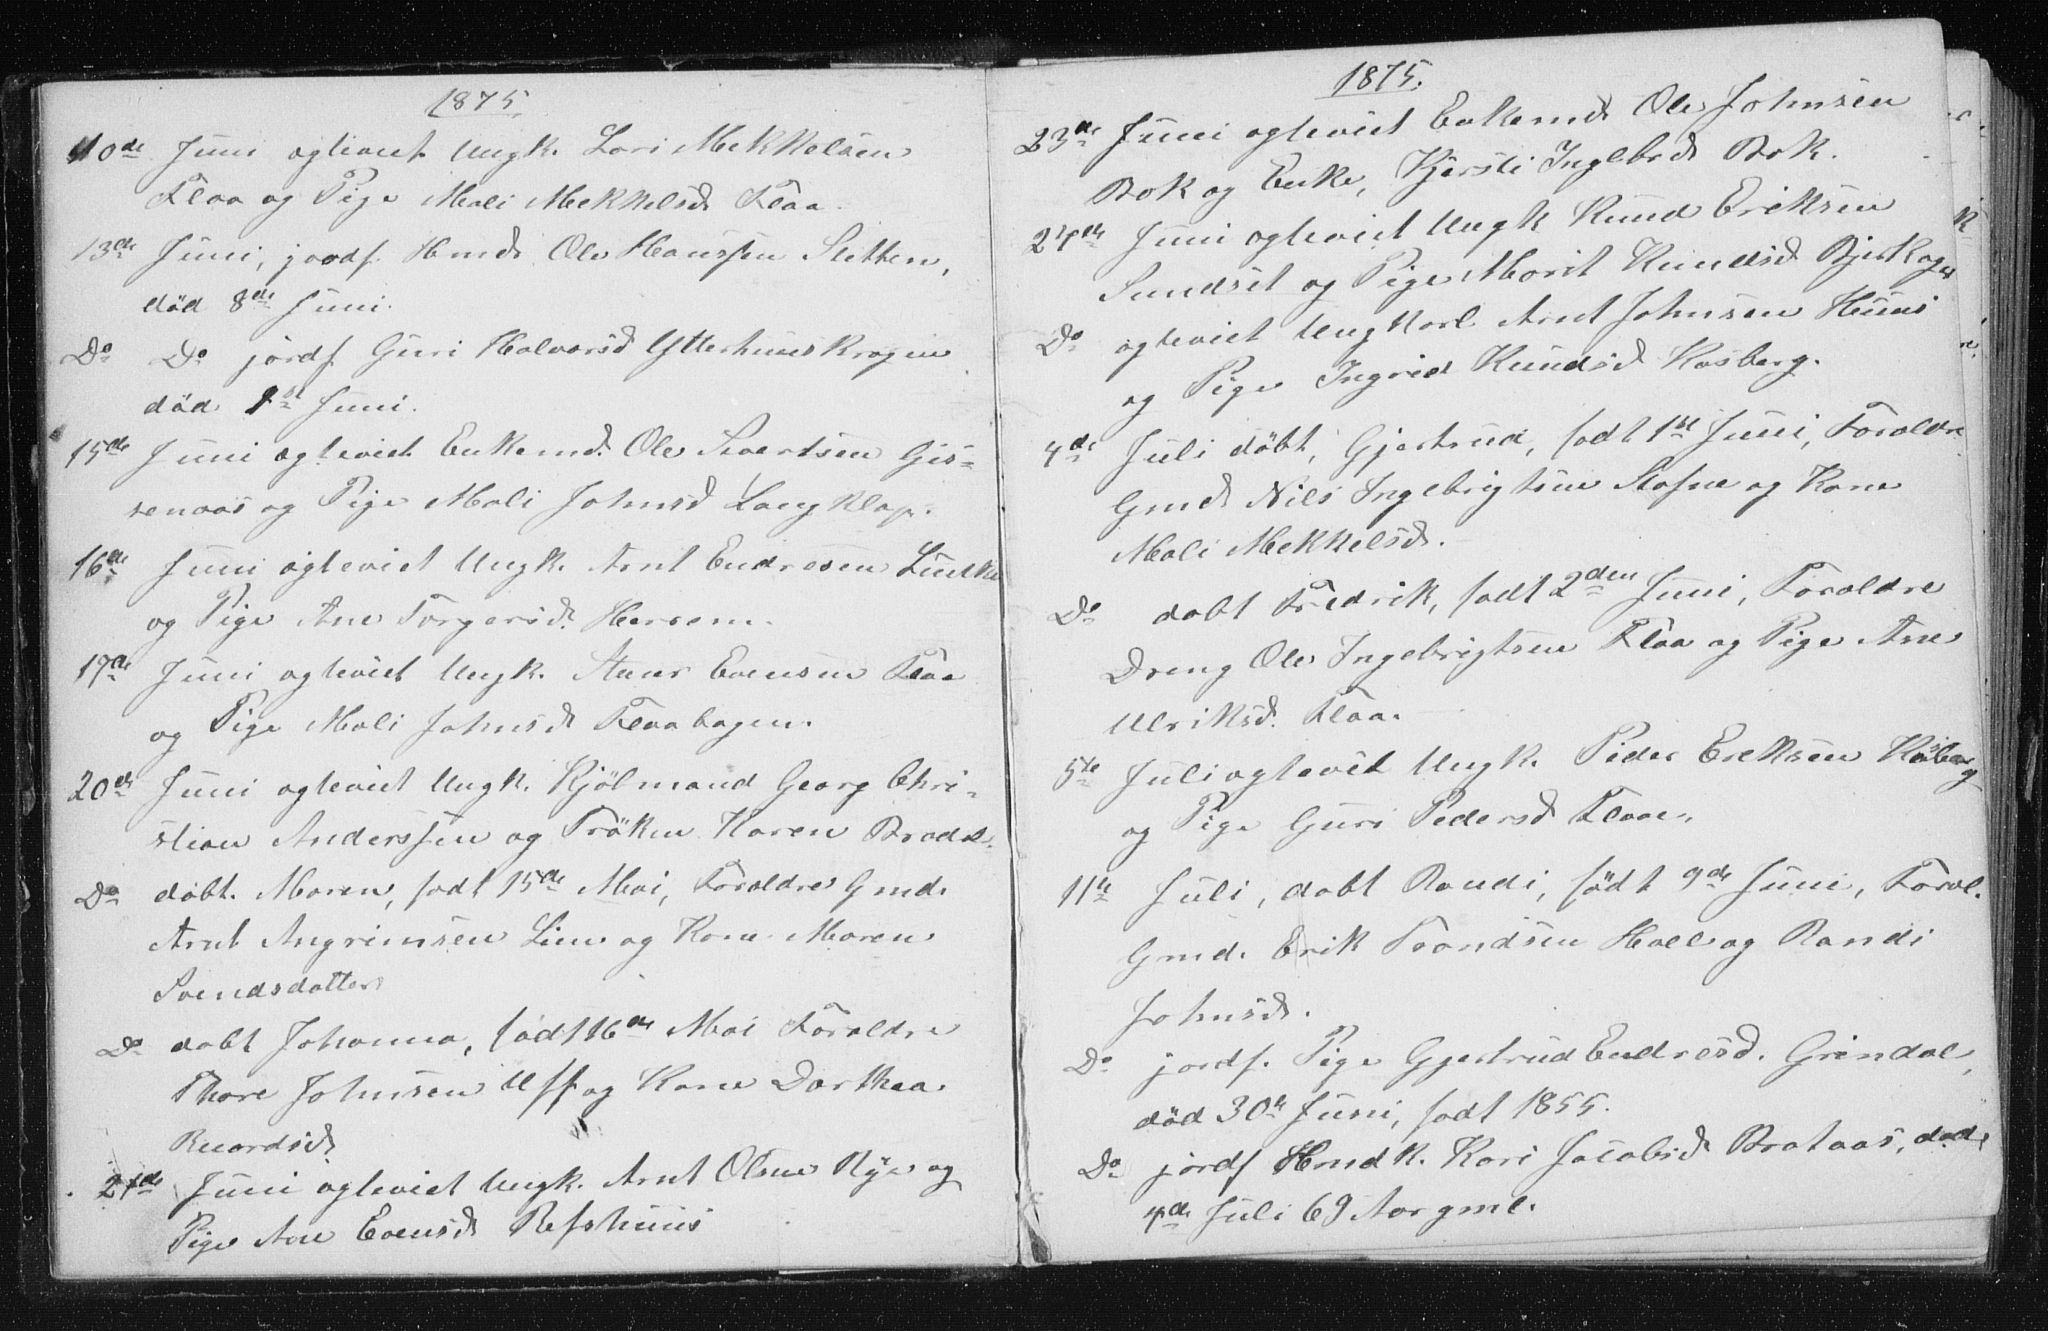 1875.
10de Juni ægteviet Ungk. Lars Mekkelsen
Flaa og Pige Mali Mekkelsd. Flaa.
13de Juni, jordf. Hmd. Ole Hanssen Sletten,
död 8de Juni.
Do Do jordf. Guri Halvorsd Ytterhuuskragen
död 1st Juni.
15de Juni ægteviet Enkemd. Ole Sivertsen Gis-
senaas og Pige Mali Johnsd Langklop.
16de Juni ægteviet Ungk. Arnt Endresen
og Pige Ane Torgersd. Hersem.
17de Juni ægteviet Ungk. Evensen Flaa
og Pige Mali Johnsd Flaahagen.
20de Juni ægteviet Ungk. Kjölmand Georg Chri-
stian Anderssen og Fröken Karen
Do döbt. Maren, född 15de Mai, Forældre Gmd.
Arnt Angrimsen Lien og Kone Maren
Svendsdatter
Do döbt Johanna, född 16de Mai Forældre
Thore Johnsen Uff og Kone Dorthea
21de Juni ægteviet Ungk. Arnt Olsen Rye og
Pige Ane Evensd. Refshuus
1875.
23de Juni ægteviet Enkemd Ole Johnsen
Bok og Enke, Kjersti Ingebrd. Bok.
24de Juni ægteviet Ungk Knud Eriksen
Sundset og Pige Marit Knudsd
Do ægteviet Ungkarl Arnt Johnsen Huus
og Pige Ingrid Knudsd Kosberg.
4de Juli döbt, Gjertrud, födt 1st Juni, Forældre
Gmd. Nils Ingebrigtsen Stafne og Kone
Mali Mekkelsd.
Do döbt Fredrik, födt 2den Juni, Forældre
Dreng Ole Ingebrigtsen Flaa og Pige Ane
Ulriksd. Flaa.
5te Juli ægteviet Ungk. Peder Eriksen Kosberg
og Pige Guri Pedersd Flaae.
11te Juli, döbt Randi, födt 9de Juni, Foræl.
Gmd. Erik Trondsen Hall og Randi
Johnsd.
Do jordf. Pige Gjertrud Endresd. Grindal,
död 30te Juni, födt 1855.
Do jordf Hmdk. Kari Jacobsd Brataas, död
4de Juli 69 Aar gml.